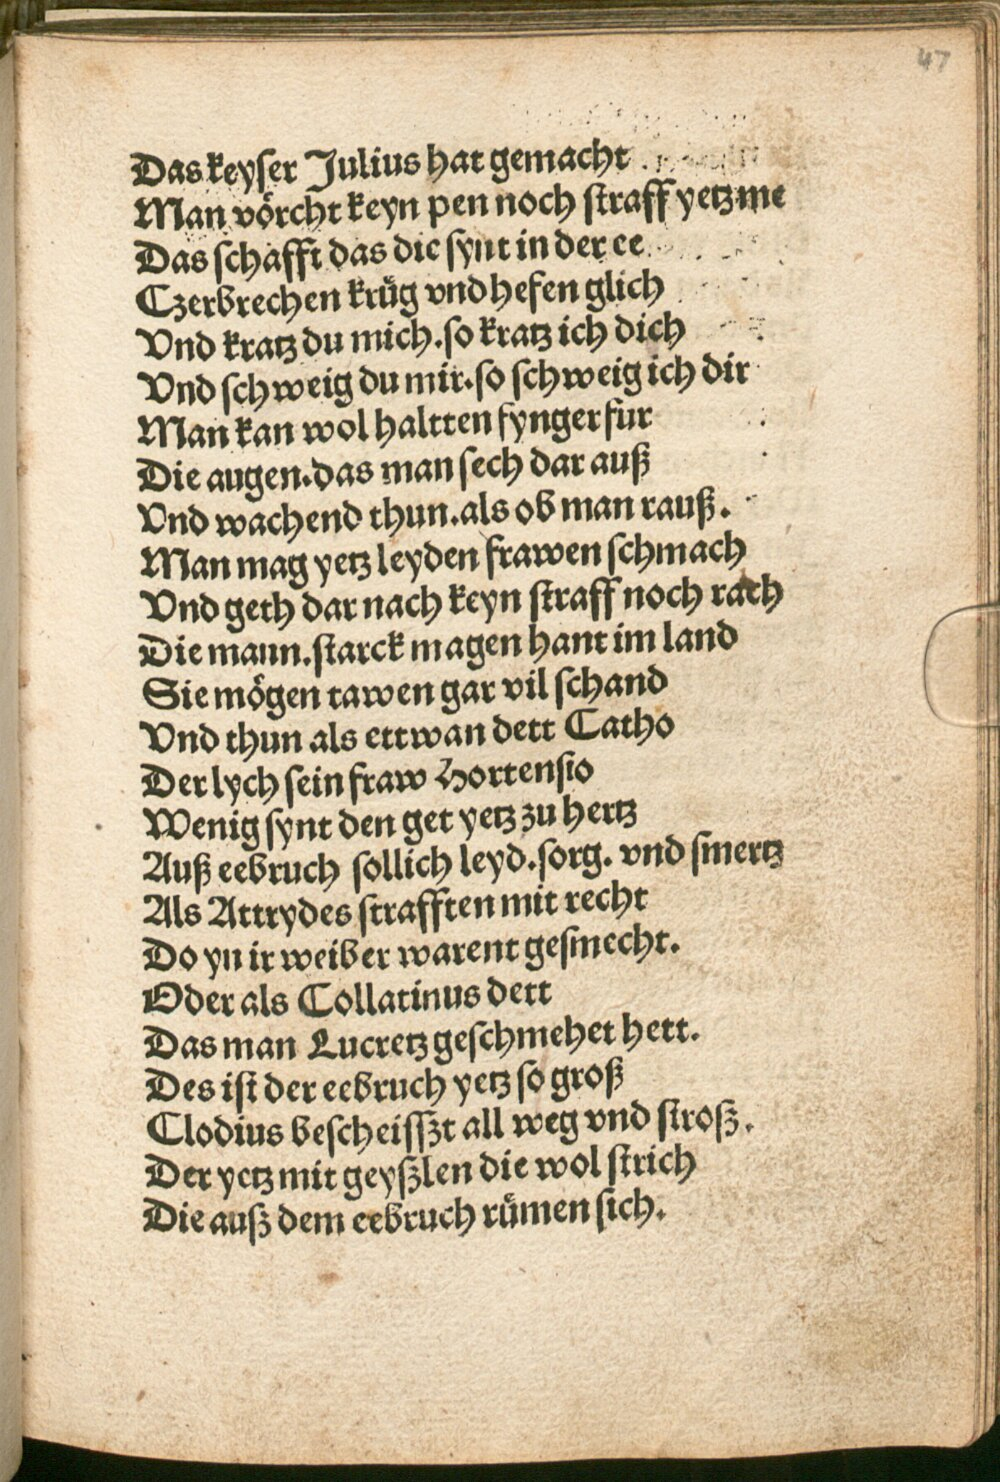 47
Das keyser Julius hat gemacht
Man vörcht keyn pen noch straff yetz me
Das schafft das die synt in der ee
Czerbrechen krüg vnd hefen glich
Vnd kratz du mich. so kratz ich dich
Vnd schweig du mir. so schweig ich dir
Man kan wol haltten fynger für
Die augen. das man sech dar auß
Vnd wachend thun. als ob man rauß.
Man mag yetz leyden frawen schmach
Vnd geth dar nach keyn straff noch rach
Die mann. starck magen hant im land
Sie mögen tawen gar vil schand
Vnd thun als ettwan dett Catho
Der lych sein fraw Hortensio
Wenig synt den get yetz zu hertz
Auß eebruch sollich leyd. sorg. vnd smertz
Als Attrydes strafften mit recht
Do yn ir weiber warent gesmecht.
Oder als Collatinus dett
Das man Lucretz geschmehet hett.
Des ist der eebruch yetz so groß
Clodius bescheisszt all weg vnd stroß.
Der yetz mit geyßlen die wol strich
Die auß dem eebruch rümen sich.